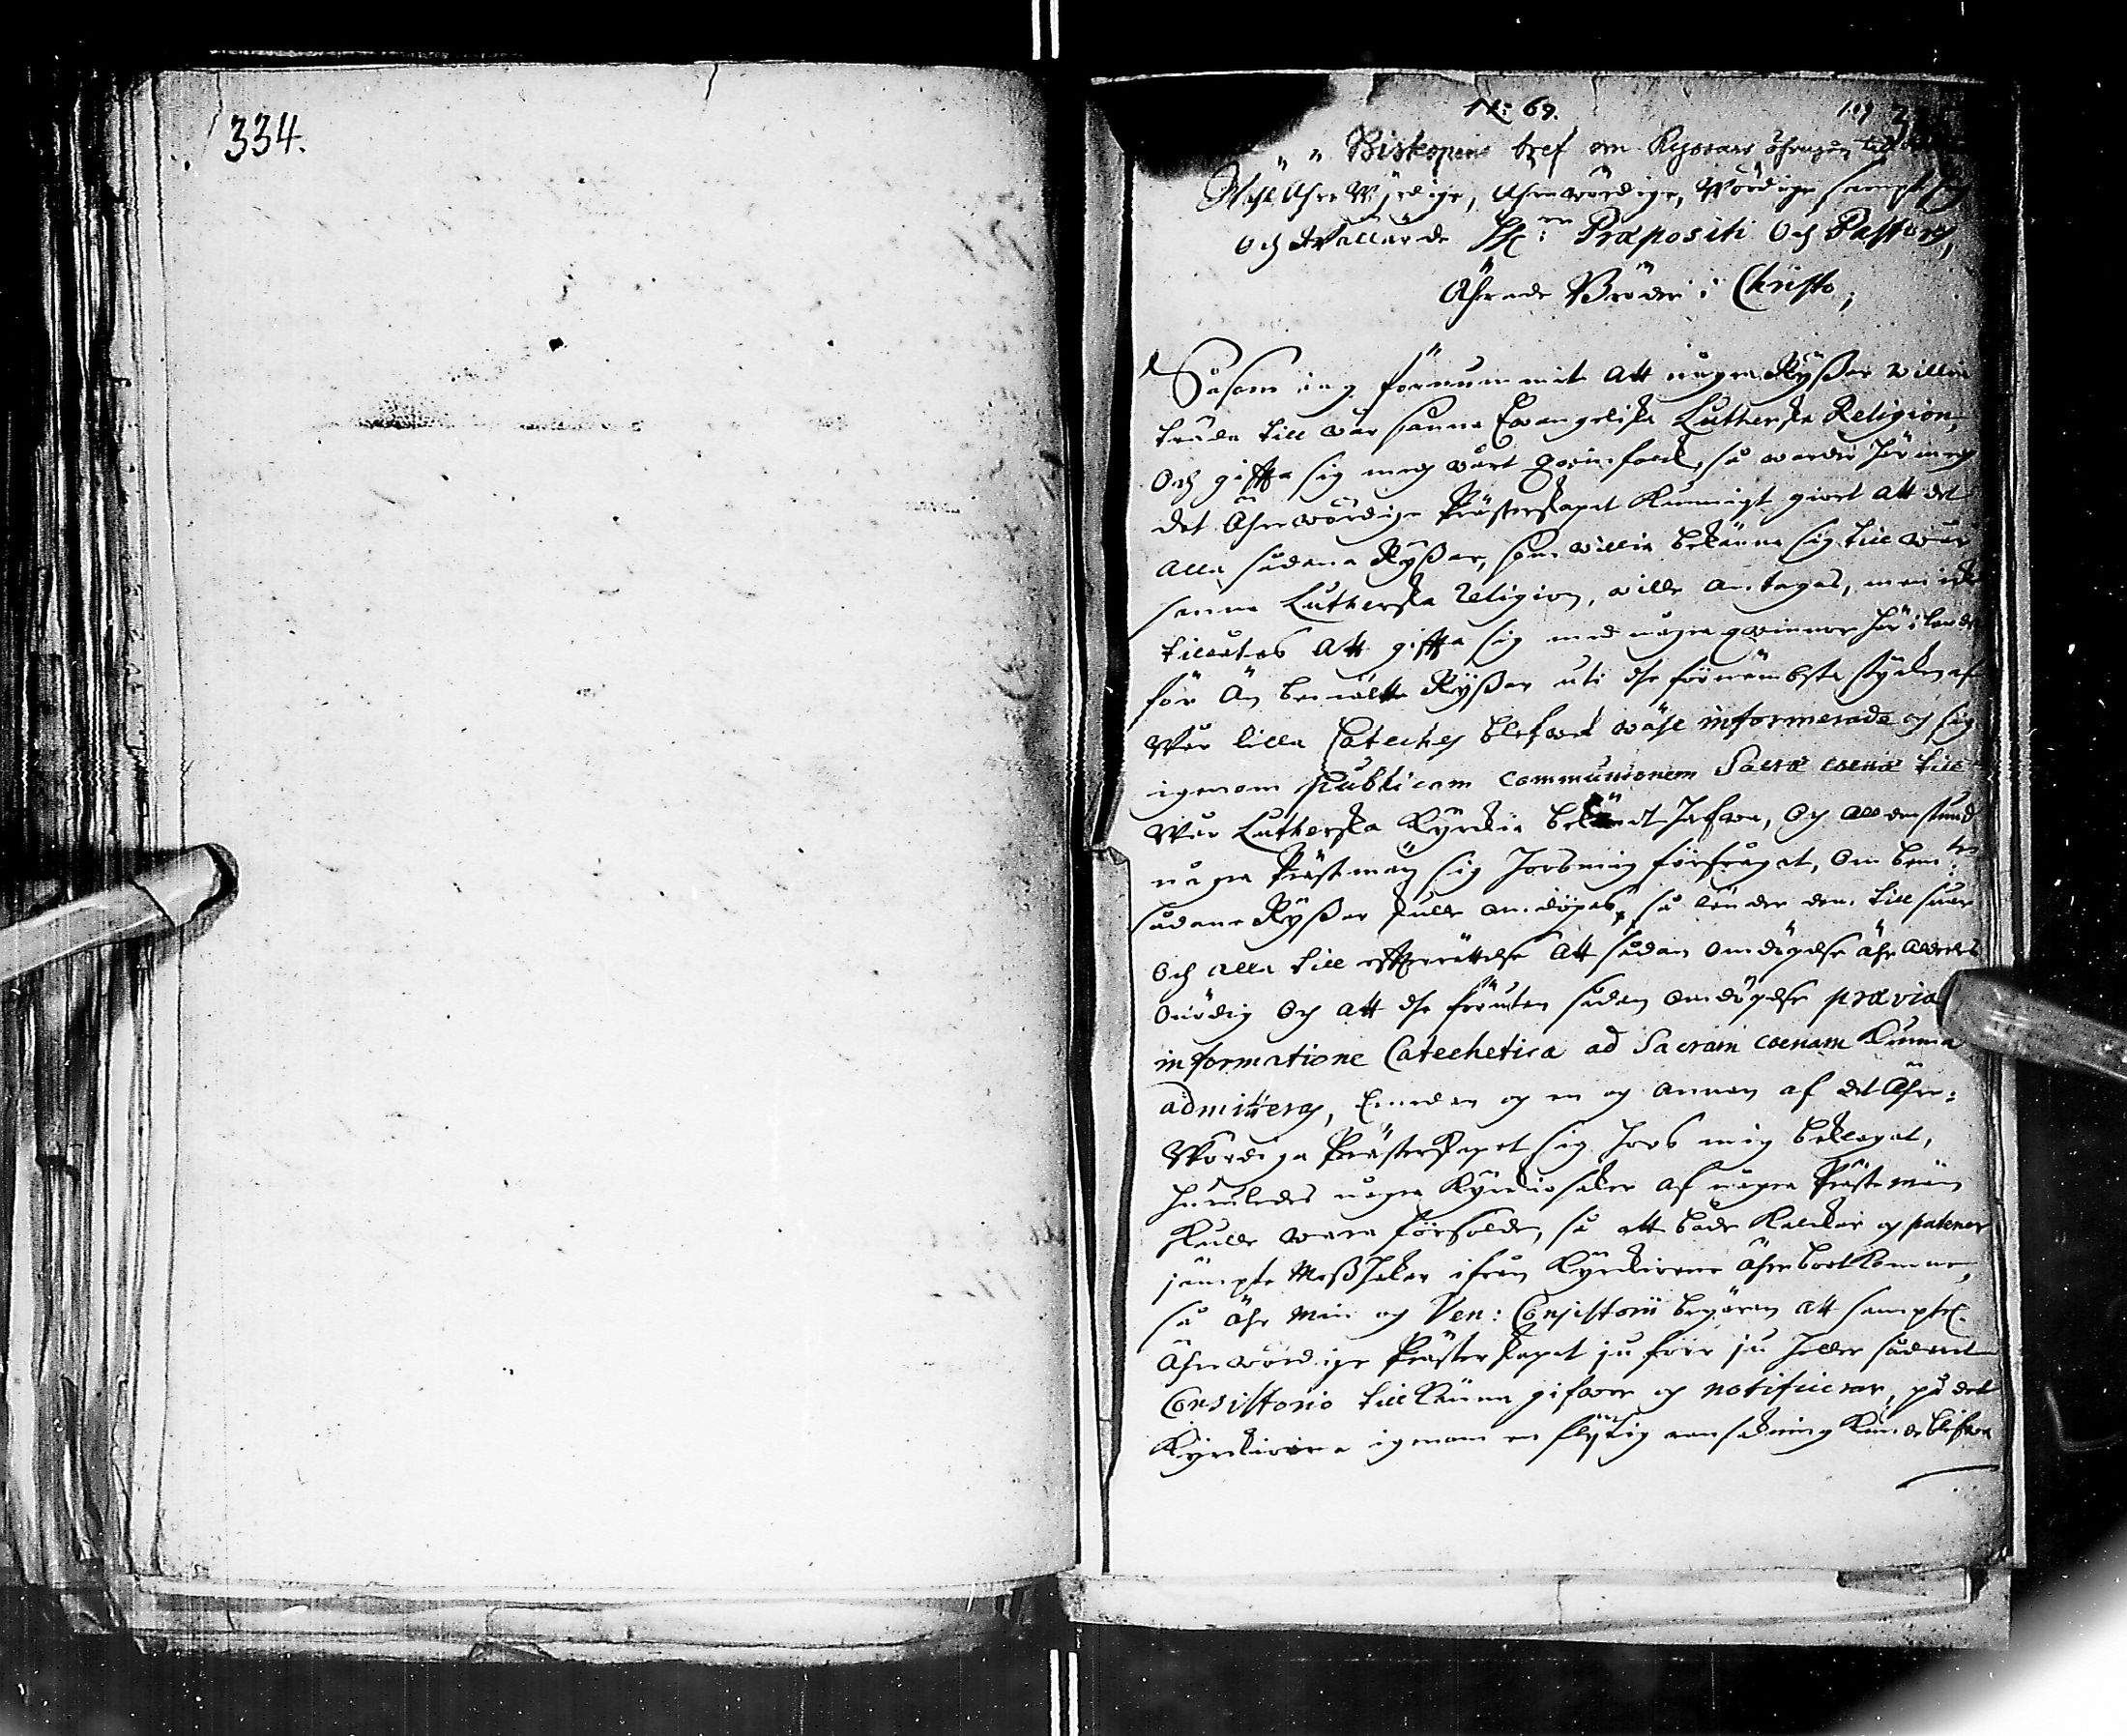 334.
N: 69.
109
Biskopens bref om Ryssars öfwergång till
Wähl Ährewyrdige, Ährewördige, Wördige sampt hög
och Wällärde HH:rr Præpositi och Pastores,
Ährade Bröder i Christo,
Såsom iag förnummit att någre Ryßar willia
träda till wår sanna Ewangeliska Lutherska Religion,
och gifta sig med wårt qwinfolck, så warder här med
det Ährewördige Prästerskapet kunnigt giort att det
alla sådana Ryßar, som willia bekänna sig till wår
sanna Lutherska Religion, wille antagas, men icke
tillåtas att gifta sig med någre qwinnor här i landet
för än bemälte Ryßar uti dhe förnämbsta stycken af
Wår lilla Cateches blefwet wähl informerade och sig
igenom publicam communionem Sacræ coenæ till
Wår Lutherska Kyrckia bekändt hafwa, och alldenstund
någre Prästmän sig hoos mig förfrågat, om bem:te
sådane Ryßar skulle omdöpas, så länder dem till swar
och alla till efterrättelse att sådan omdöpelse ähr aldeles
onödig och att dhe förutan sådan omdöpelse prævia
informatione Catechetica ad Sacram coenam kunna
admitteras, Emedan och en och annan af det Ähre-
Wördiga Prästerskapet sig hoos mig beklagat,
huruledes någre Kyrckiosaker af någre Prästmän
skulle wara försålde, så att både Kalckar och patener
jämpte Meßhakar ifrån Kyrckiorne ähre bortkomne,
så ähr min och Ven: Consistorii begäran att samptl.
Ährewördige Prästerskapet ju förr ju heller sådant
Consistorio tillkänna gifwer och notificerar, på det
Kyrckiorne igenom en flijtig ransakning kunde blifwa